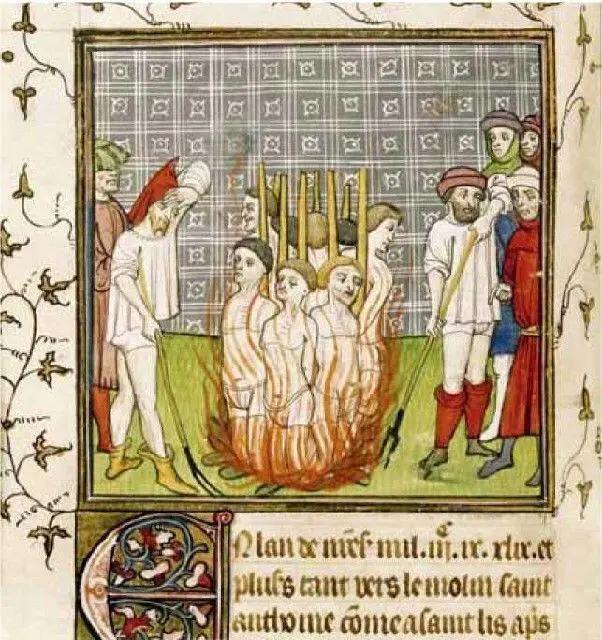 EN lan de mil. iijᶜ. ix. xlix. et
plus tant vers le molin saint
anthoine cõme a saint lis aps